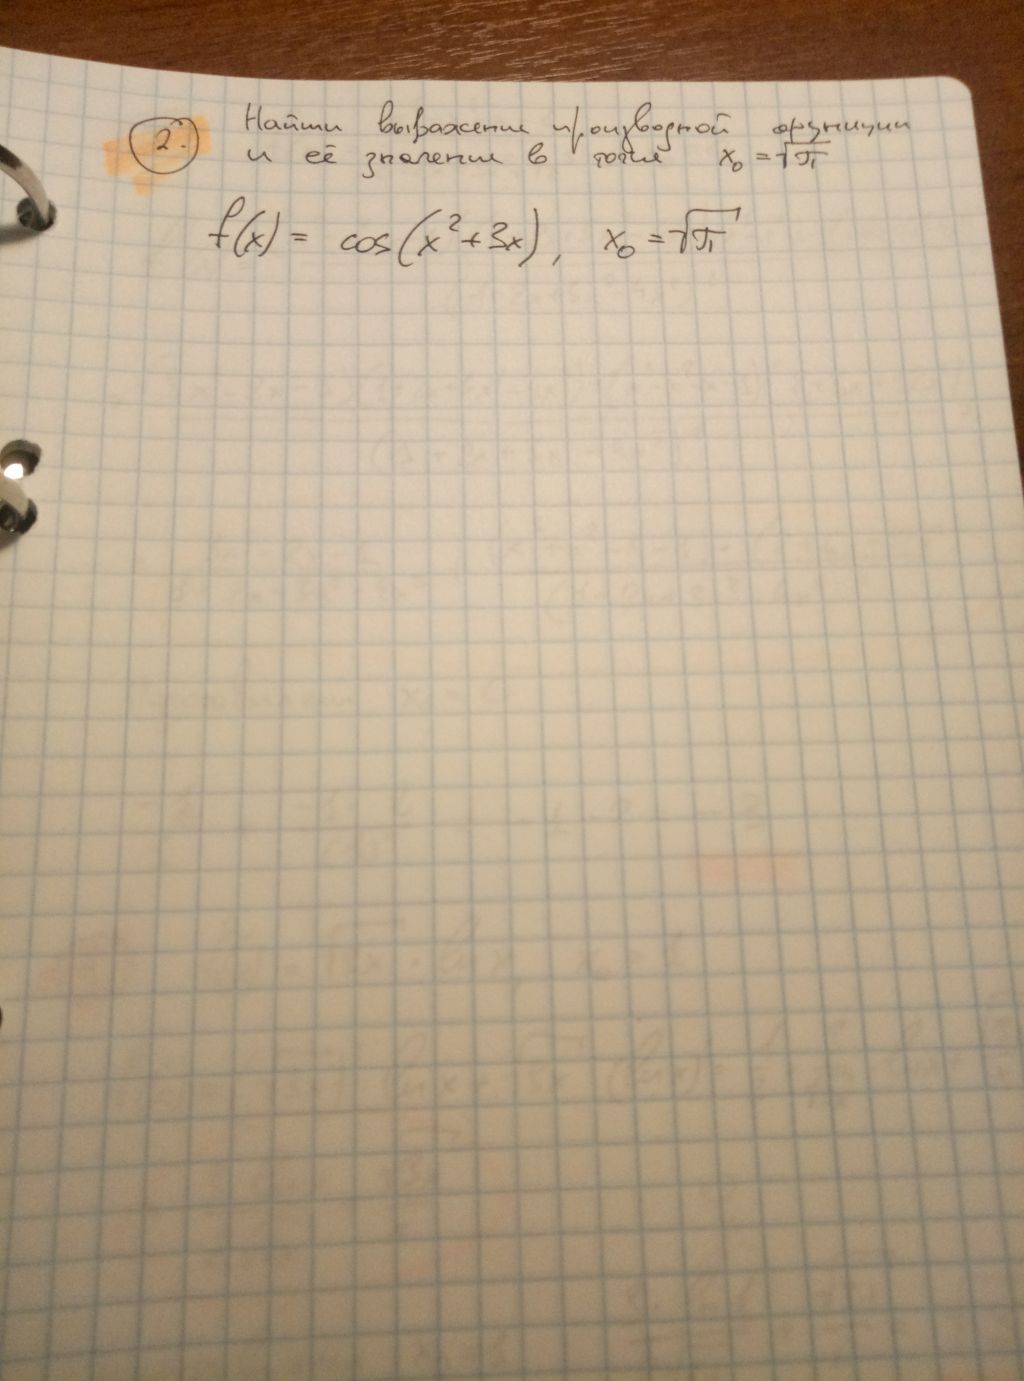 2. Найти выражение производной функции
и её значение в точке x₀ = √π
f(x) = cos(x² + 3x), x₀ = √π